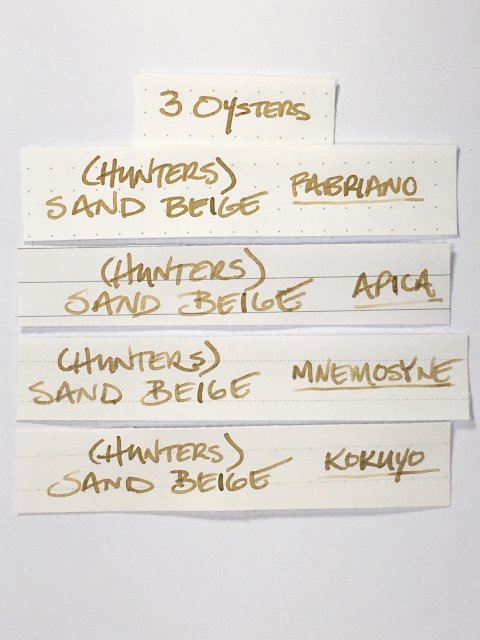 3 OYSTERS
(HUNTERS)
SAND BEIGE
FABRIANO
(HUNTERS)
SAND BEIGE
APICA
(HUNTERS)
SAND BEIGE
MNEMOSYNE
(HUNTERS)
SAND BEIGE
KOKUYO